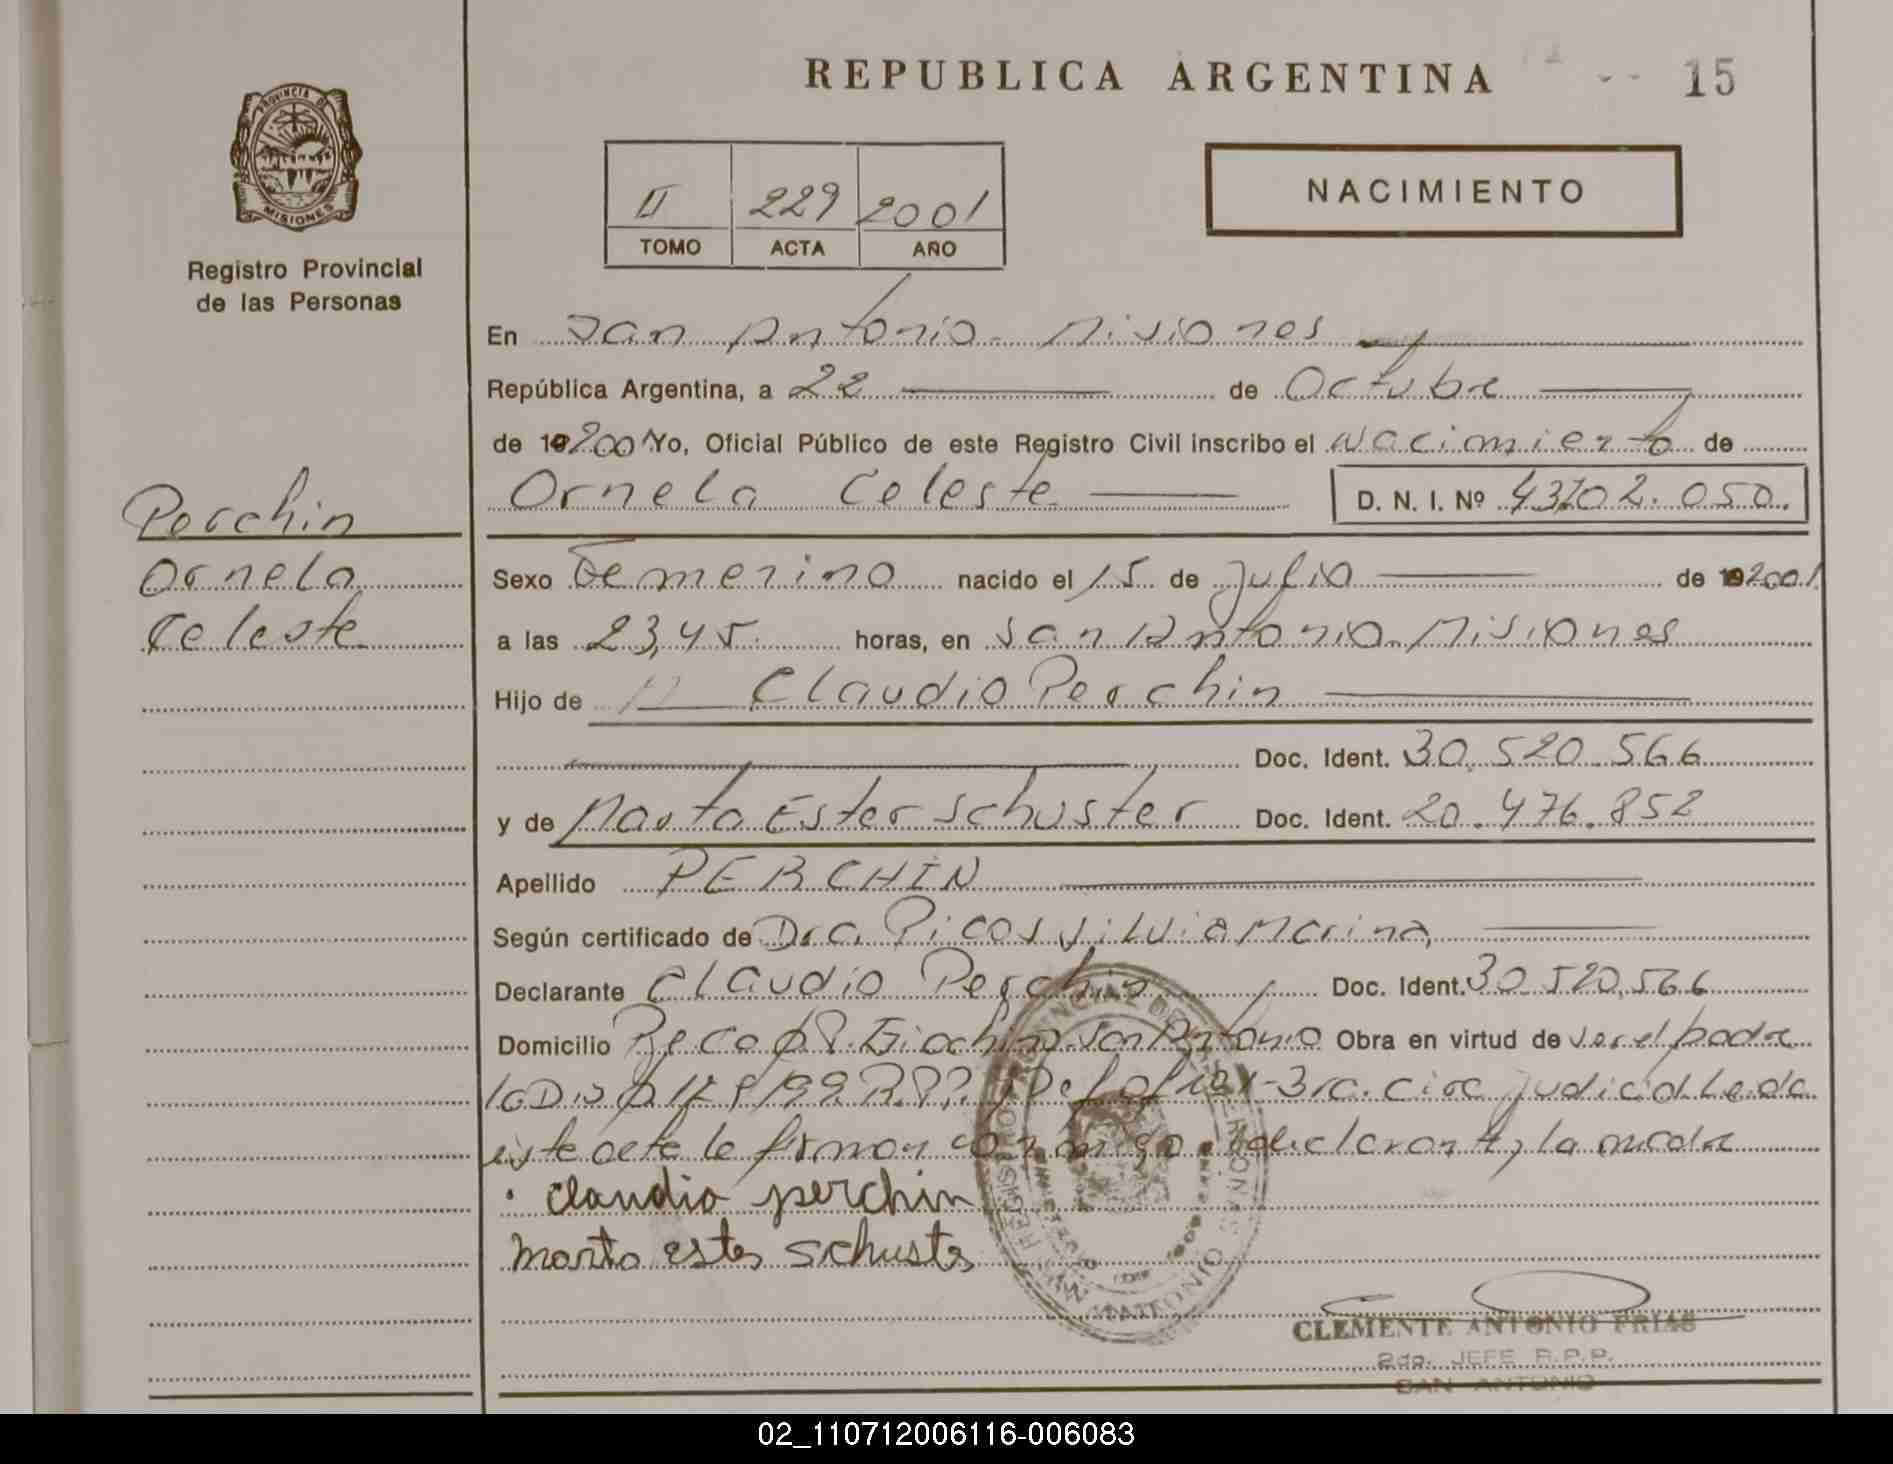 REPUBLICA ARGENTINA 15
PROVINCIA DE
MISIONES
Registro Provincial
de las Personas
II 229 2001
TOMO ACTA AÑO
NACIMIENTO
En San Antonio - Misiones
República Argentina, a 22 de Octubre
de 19 2001 Yo, Oficial Público de este Registro Civil inscribo el Nacimiento de
Ornela Celeste D. N. I. Nº 43.702.050.
Perchin
Ornela
Celeste
Sexo Femenino nacido el 15 de Julio de 19 2001
a las 23,45 horas, en San Antonio - Misiones
Hijo de Claudio Perchin
Doc. Ident. 30.520.566
y de Marta Ester Schuster Doc. Ident. 20.476.852
Apellido PERCHIN
Según certificado de Dra. Picos Silvia Marina
Declarante Claudio Perchin Doc. Ident. 30.520.566
Domicilio San Antonio Obra en virtud de ser el padre
3ra. circ Judicial. Leida
este acta la firman conmigo declarante, la madre
Claudio perchin
Marta ester schuster
CLEMENTE ANTONIO FRIAS
2do. JEFE R.P.P.
SAN ANTONIO
02_110712006116-006083